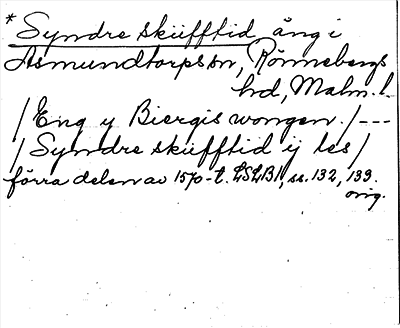 * Syndre skiifftid äng i
Asmundtorps sn, Rönnebergs
hd, Malm. l.
/ Eng y Biergis wongen. / ---
/ Syndre skiifftid ij les /
förra delen av 1570-t. LSLB1, ss. 132, 133.
orig.